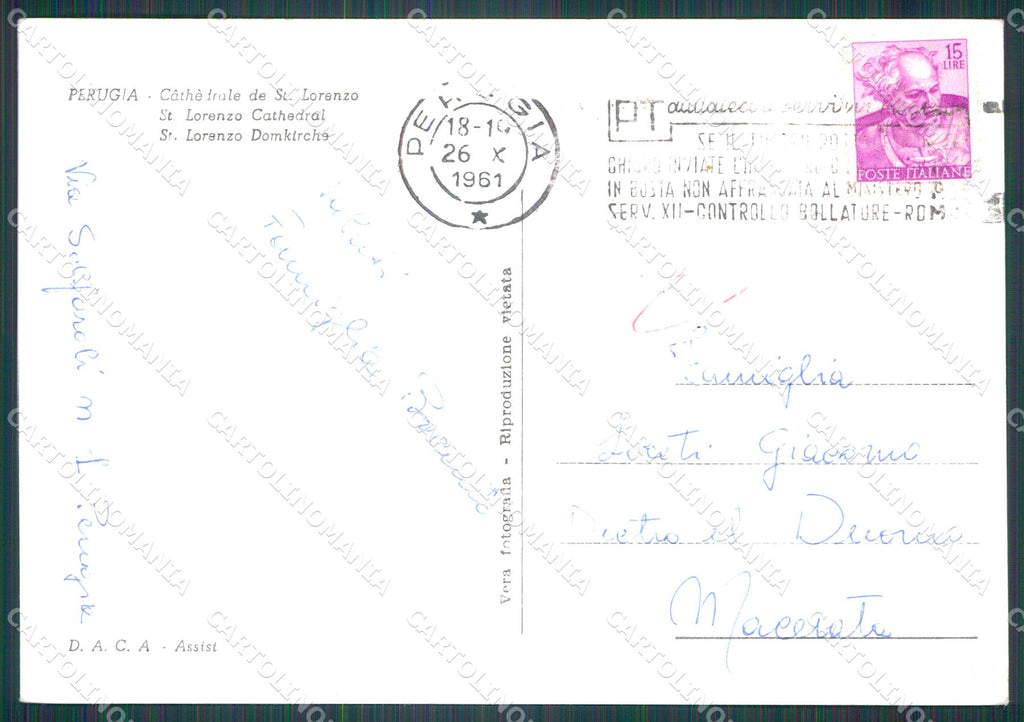 PERUGIA - Câthèdrale de St. Lorenzo
St. Lorenzo Cathedral
St. Lorenzo Domkirche
PERUGIA
18-19
26 X
1961
15
LIRE
POSTE ITALIANE
PT
SE IL
INVIATE
IN BUSTA NON AFFRANCATA AL MINISTERO P
SERV. XII-CONTROLLO BOLLATURE-ROM
Saluti
Famiglia
Via n 1 Perugia
Vera fotografia - Riproduzione vietata
Famiglia
Loreti Giacomo
Dietro il Duomo
Macerata
D. A. C. A - Assisi
CARTOLINOMANIA